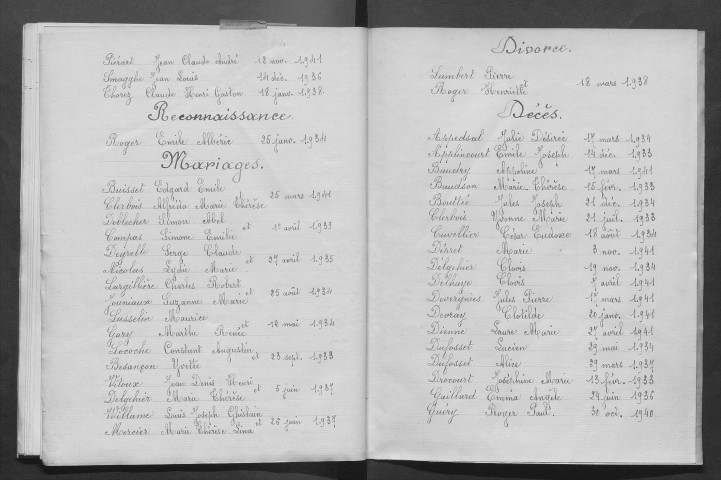 Piérart Jean Claude André 12 nov. 1941
Smagghe Jean Louis 14 déc. 1936
Thorez Claude Henri Gaston 18 janv. 1938.
Reconnaissance.
Roger Emile Albéric 26 janv. 1934
Mariages.
Buisset Edgard Emile
et 25 mars 1941
Clerbois Marie Thérèse
Deblecher Simon Abel
et 1er avril 1933
Compas Simone Emilie
Degrelle Serge Claude
et 27 avril 1935
Nicolas Lydie Marie
Largillière Charles Robert
et 25 août 1934
Jouniaux Suzanne Marie
Lusselin Maurice
et 12 mai 1934
Gary Marthe Renée
Lecoche Constant Augustin
et 23 sept. 1933
Besançon Yvette
Vitoux Jean Denis Henri
et 5 juin 1937
Delgehier Marie Thérèse
Willame Louis Joseph Ghislain
et 26 juin 1937
Mercier Marie Thérèse Lina
Divorce.
Lambert Pierre
et 18 mars 1938
Roger Henriette
Décès.
Julie Désirée 17 mars 1934
Applincourt Emile Joseph 14 déc. 1933
Baudry Appoline 17 mars 1941
Baudson Marie Thérèse 15 févr. 1933
Boutlée Jules Joseph 21 déc. 1934
Clerbois Yvonne Marie 21 juil. 1933
Cuvellier César Eudoxe 18 août 1934
Désiret Marie 3 nov. 1941
Delgehier Clovis 19 nov. 1934
Delhaye Clovis 7 avril 1941
Devergnies Jules Pierre 17 mars 1941
Devray Clotilde 20 janv. 1941
Dienne Laure Marie 27 avril 1941
Dufosset Lucien 29 mai 1934
Dufosset Alice 29 mars 1937
Drocourt Joséphine Marie 13 févr. 1933
Gaillard Emma Angèle 24 juin 1936
Guéry Roger Paul 30 oct. 1940